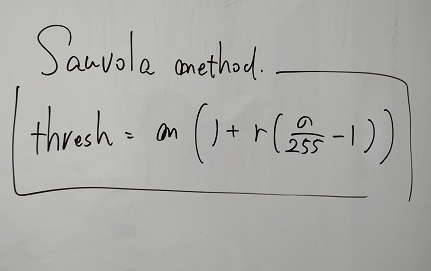 Sauvola method.
thresh = m (1 + r(σ/255 - 1))